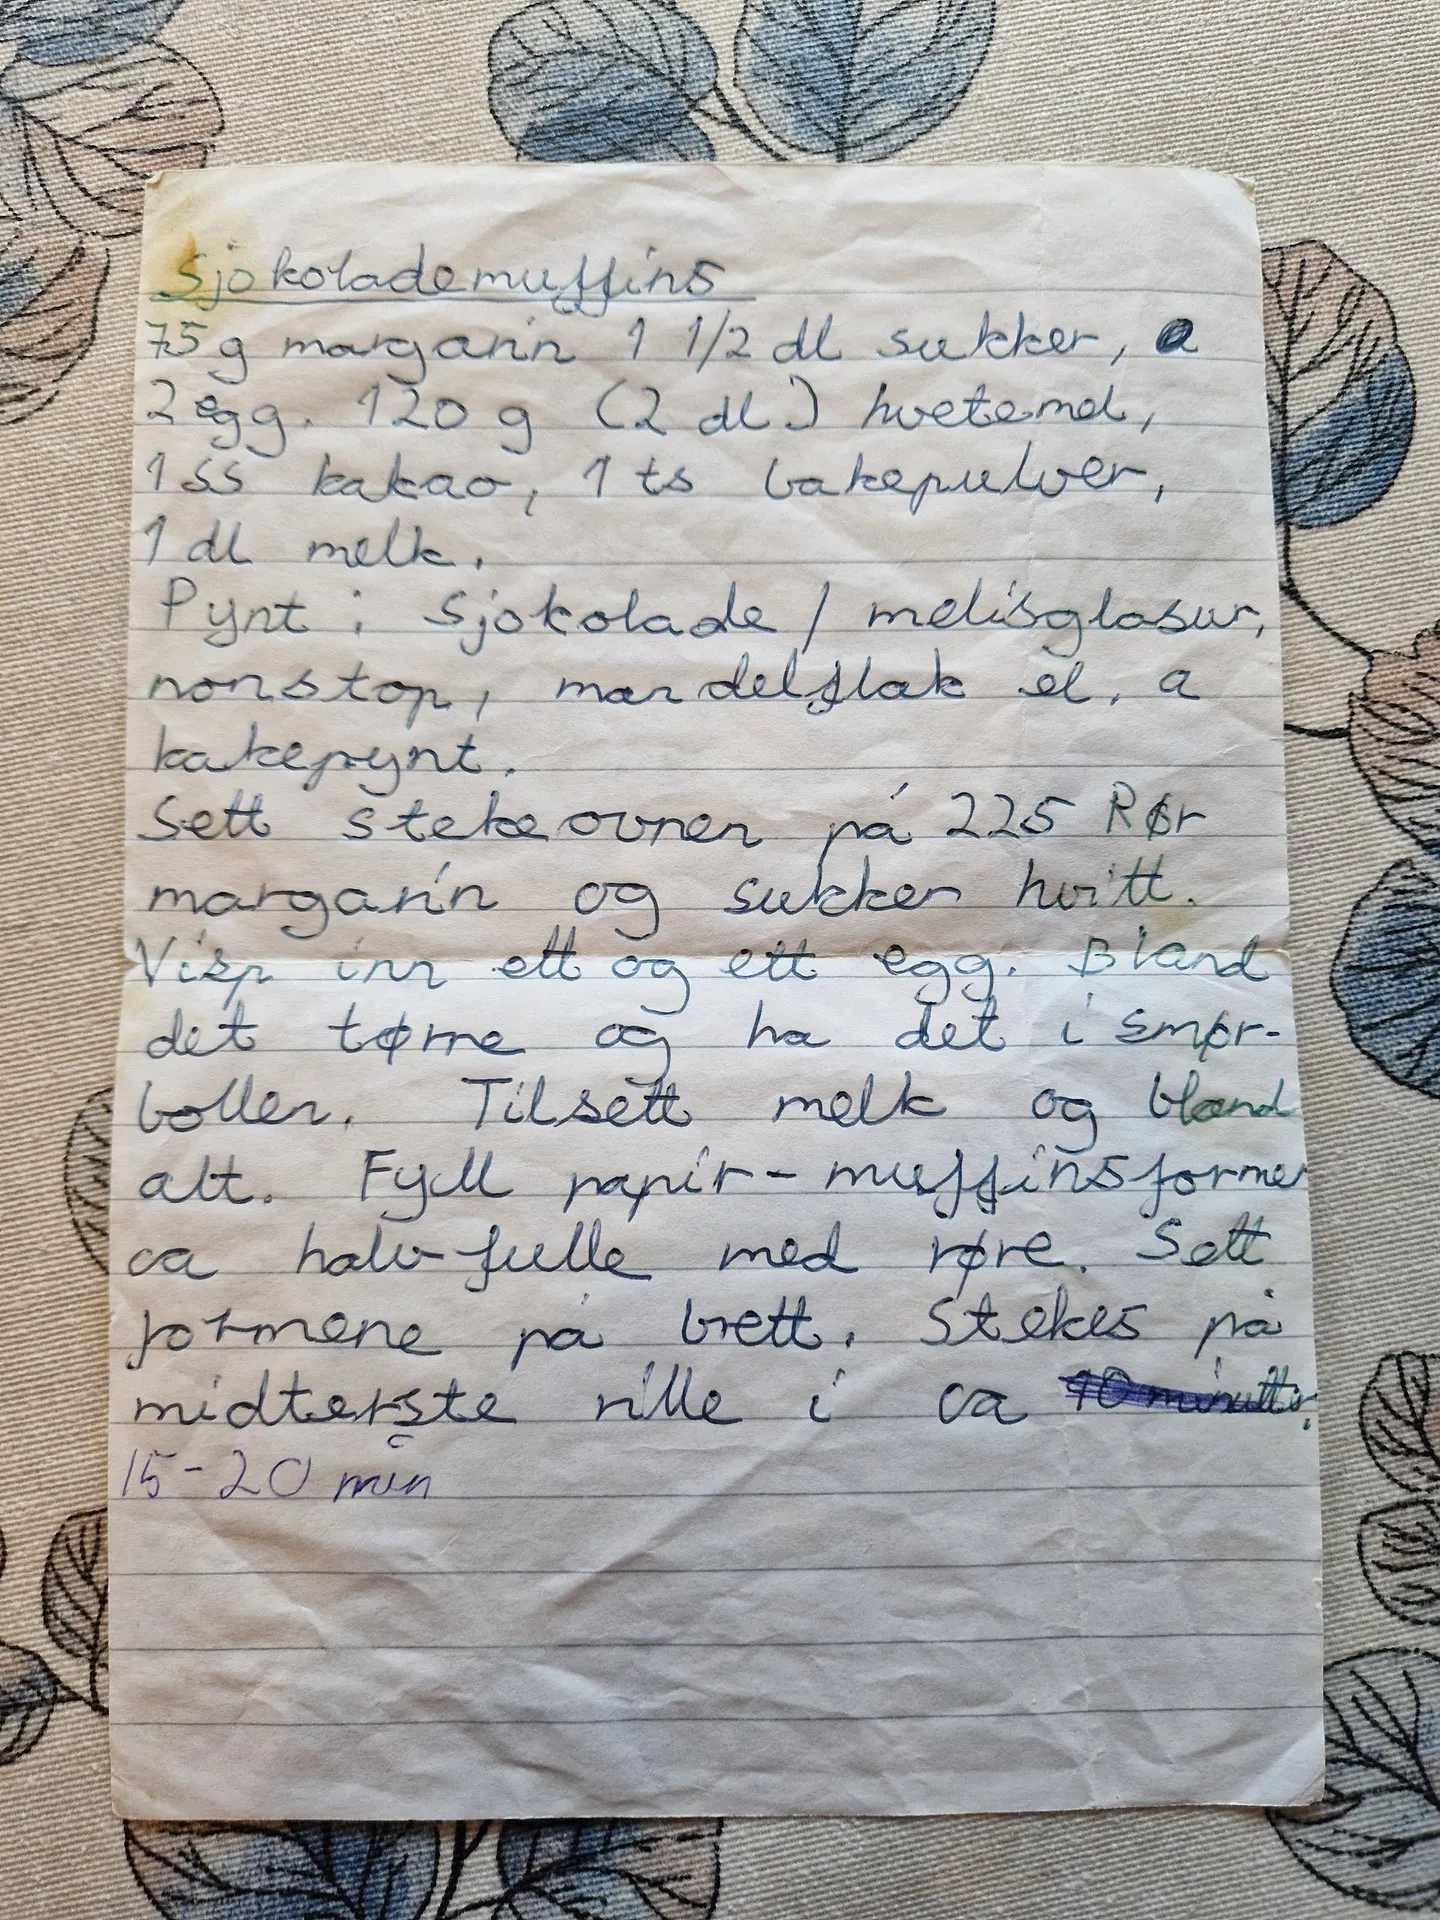 Sjokolademuffins
75 g margarin 1 1/2 dl sukker,
2 egg. 120 g (2 dl) hvetemel,
1 ss kakao, 1 ts bakepulver,
1 dl melk.
Pynt: Sjokolade / melisglasur,
nonstop, mandelflak el. a
kakepynt.
Sett stekeovnen på 225 Rør
margarin og sukker hvitt.
Visp inn ett og ett egg. Bland
det tørre og ha det i smør-
bollen. Tilsett melk og bland
alt. Fyll papir-muffinsformer
ca halv-fulle med røre. Sett
formene på brett. Stekes på
midterste rille i ca 10 minutter.
15-20 min